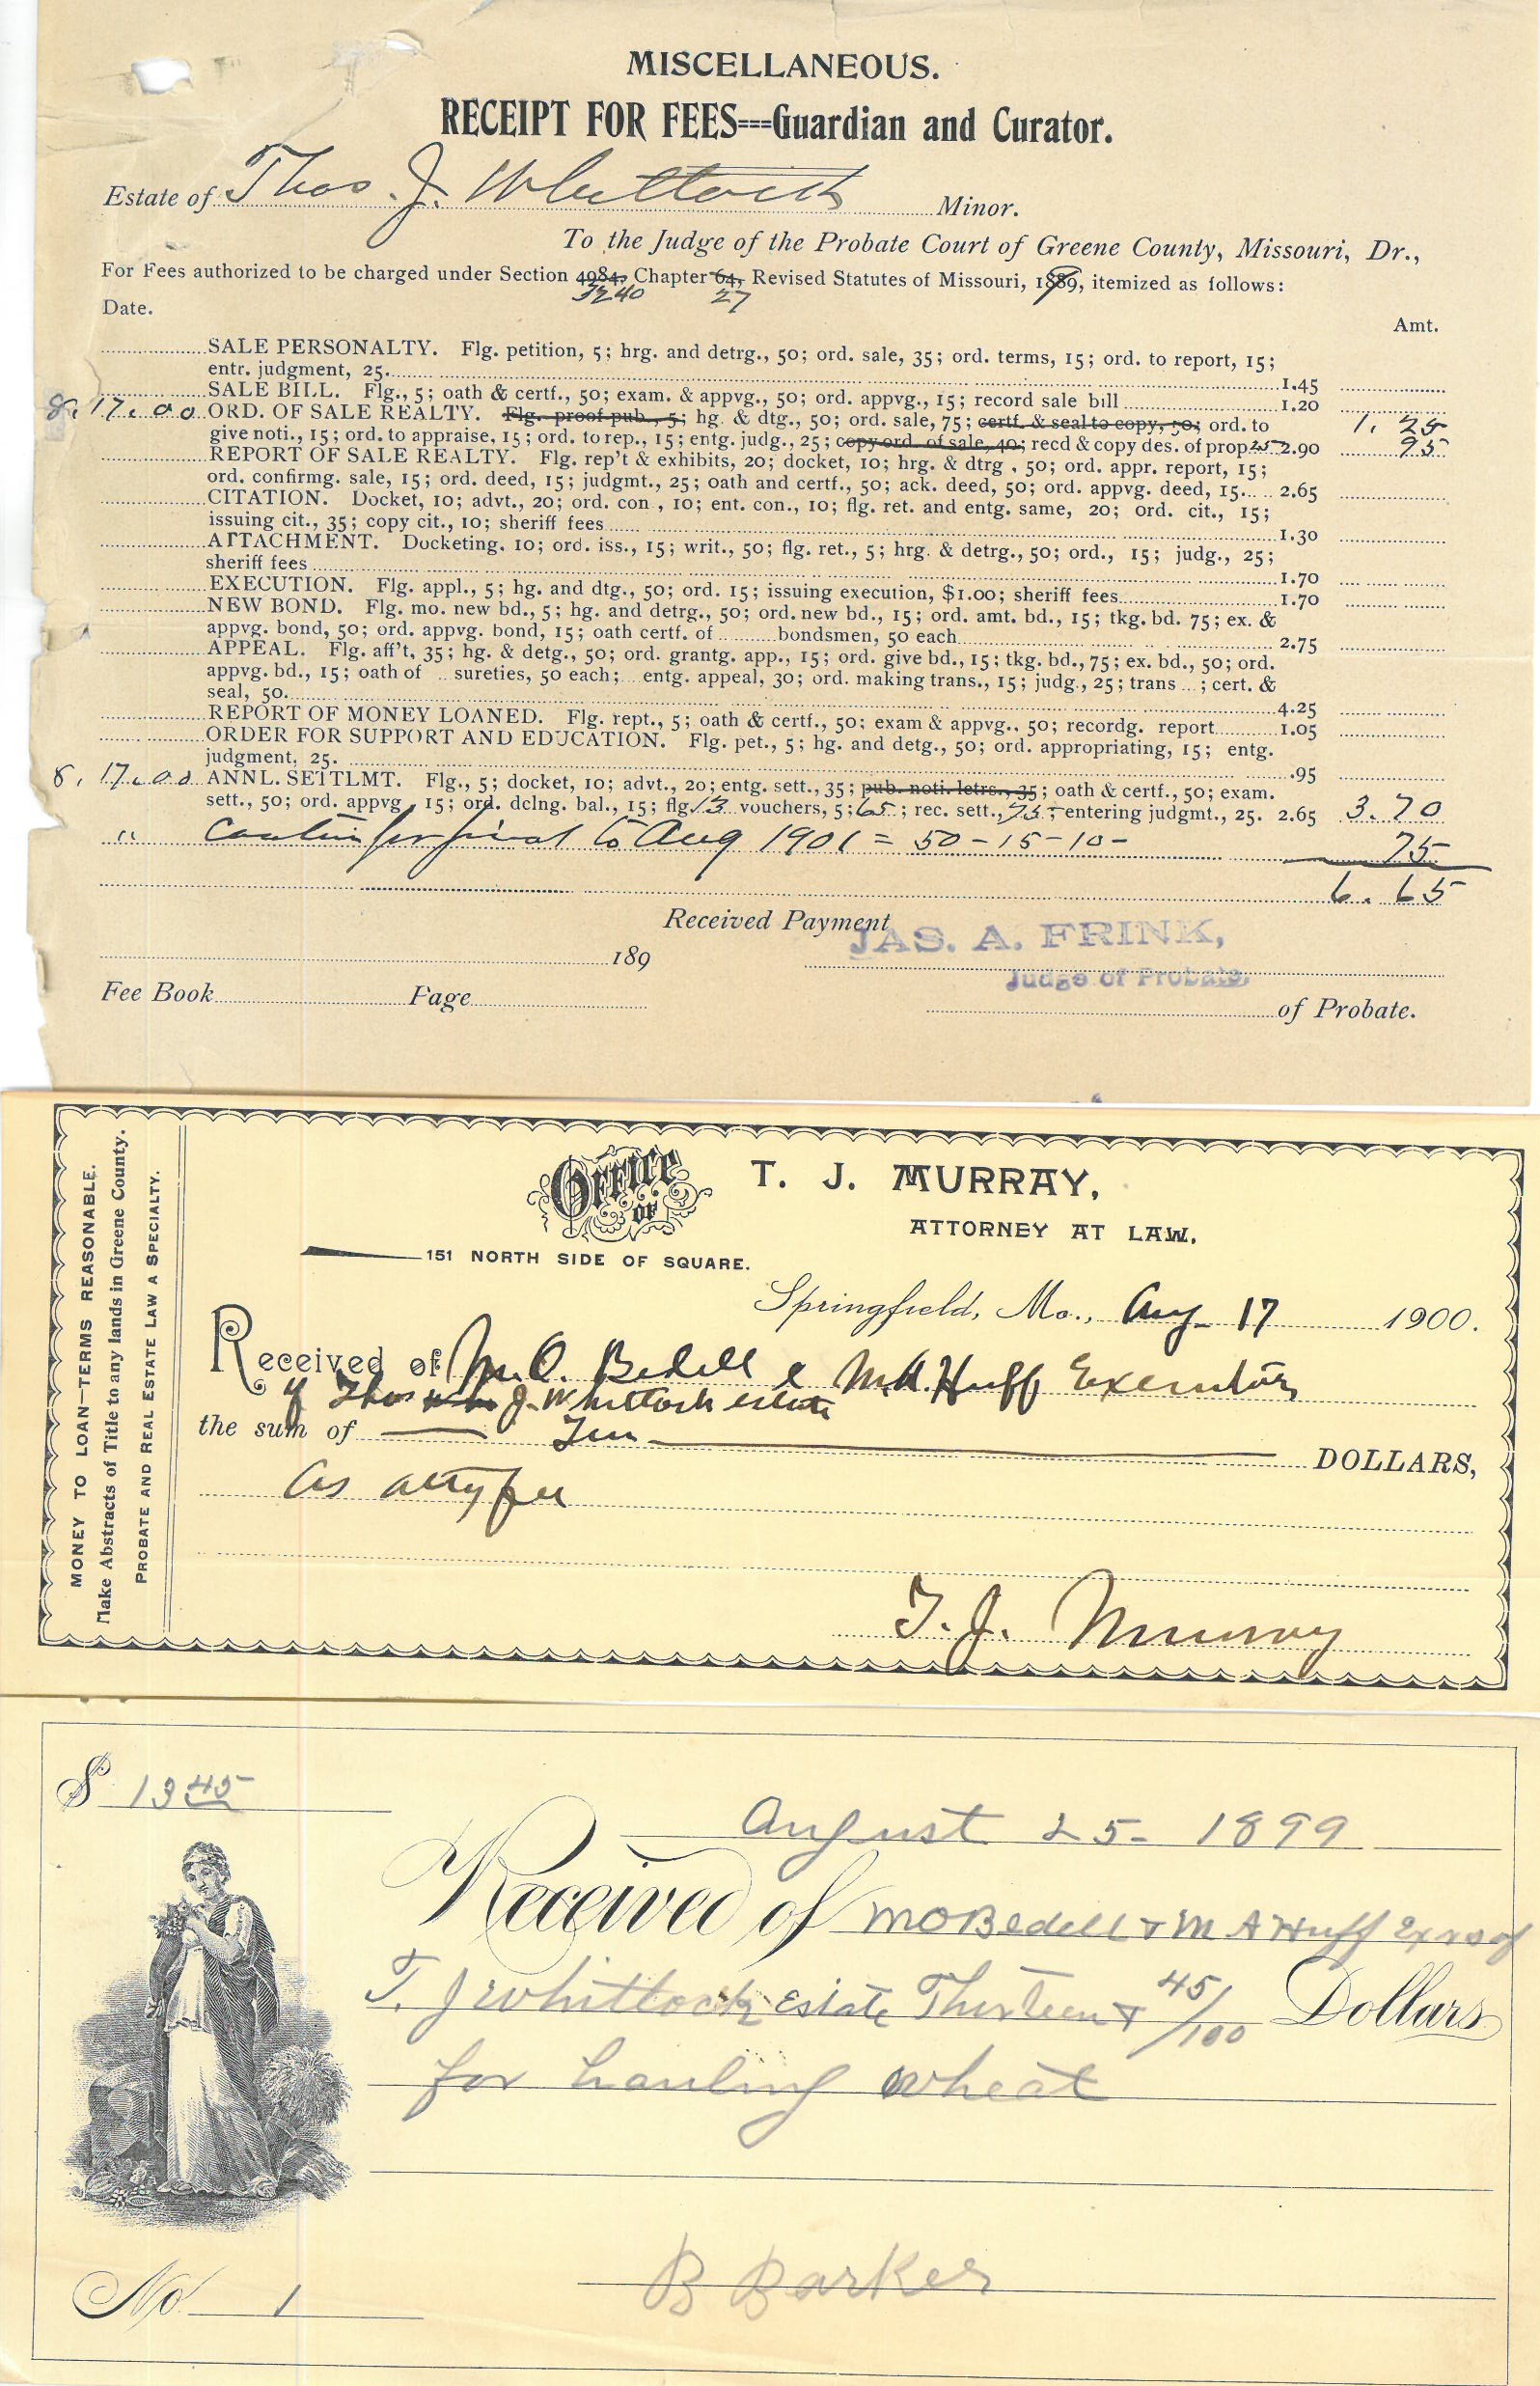 MISCELLANEOUS.
RECEIPT FOR FEES===Guardian and Curator.
Estate of Thos. J. Whittock Minor.
To the Judge of the Probate Court of Greene County, Missouri, Dr.,
For Fees authorized to be charged under Section 4984, Chapter 64, Revised Statutes of Missouri, 1889, itemized as follows:
3240 27
Date.
Amt.
SALE PERSONALTY. Flg. petition, 5; hrg. and detrg., 50; ord. sale, 35; ord. terms, 15; ord. to report, 15;
entr. judgment, 25. 1.45
SALE BILL. Flg., 5; oath & certf., 50; exam. & appvg., 50; ord. appvg., 15; record sale bill 1.20
8. 17. 00 ORD. OF SALE REALTY. Flg. proof pub., 5; hg. & dtg., 50; ord. sale, 75; certf. & seal to copy, 50; ord. to 1. 25
give noti., 15; ord. to appraise, 15; ord. to rep., 15; entg. judg., 25; copy ord. of sale, 40; recd & copy des. of prop 25 2.90 95
REPORT OF SALE REALTY. Flg. rep't & exhibits, 20; docket, 10; hrg. & dtrg., 50; ord. appr. report, 15;
ord. confirmg. sale, 15; ord. deed, 15; judgmt., 25; oath and certf., 50; ack. deed, 50; ord. appvg. deed, 15. 2.65
CITATION. Docket, 10; advt., 20; ord. con., 10; ent. con., 10; flg. ret. and entg. same, 20; ord. cit., 15;
issuing cit., 35; copy cit., 10; sheriff fees 1.30
ATTACHMENT. Docketing. 10; ord. iss., 15; writ., 50; flg. ret., 5; hrg. & detrg., 50; ord., 15; judg., 25;
sheriff fees 1.70
EXECUTION. Flg. appl., 5; hg. and dtg., 50; ord. 15; issuing execution, $1.00; sheriff fees 1.70
NEW BOND. Flg. mo. new bd., 5; hg. and detrg., 50; ord. new bd., 15; ord. amt. bd., 15; tkg. bd. 75; ex. &
appvg. bond, 50; ord. appvg. bond, 15; oath certf. of bondsmen, 50 each 2.75
APPEAL. Flg. aff't, 35; hg. & detg., 50; ord. grantg. app., 15; ord. give bd., 15; tkg. bd., 75; ex. bd., 50; ord.
appvg. bd., 15; oath of sureties, 50 each; entg. appeal, 30; ord. making trans., 15; judg., 25; trans ; cert. &
seal, 50. 4.25
REPORT OF MONEY LOANED. Flg. rept., 5; oath & certf., 50; exam & appvg., 50; recordg. report 1.05
ORDER FOR SUPPORT AND EDUCATION. Flg. pet., 5; hg. and detg., 50; ord. appropriating, 15; entg.
judgment, 25. .95
8. 17. 00 ANNL. SETTLMT. Flg., 5; docket, 10; advt., 20; entg. sett., 35; pub. noti. letrs., 35; oath & certf., 50; exam.
sett., 50; ord. appvg, 15; ord. dclng. bal., 15; flg. 13 vouchers, 5; 65; rec. sett., 75; entering judgmt., 25. 2.65 3.70
" for final to Aug 1901 = 50 - 15 - 10 - 75
6. 65
Received Payment
JAS. A. FRINK,
189
Judge of Probate
Fee Book Page of Probate.
OFFICE OF T. J. MURRAY,
ATTORNEY AT LAW.
151 NORTH SIDE OF SQUARE.
MONEY TO LOAN—TERMS REASONABLE.
Make Abstracts of Title to any lands in Greene County.
PROBATE AND REAL ESTATE LAW A SPECIALTY.
Springfield, Mo., Aug 17 1900.
Received of M.O. Bedell & M.A. Huff Executors
of Thos J. Whittock estate
the sum of Ten DOLLARS,
As atty fee
T. J. Murray
$ 13 45
August 25- 1899
Received of M O Bedell & M A Huff Exrs of
T. J Whittock Estate Thirteen & 45/100 Dollars
for hauling wheat
No 1
B Barker